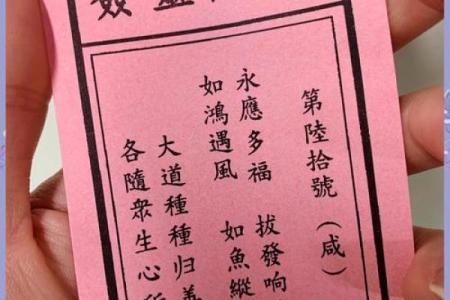 第陸拾號（咸）
永應多福 拔發响
如鴻遇風 如魚縱
大道種種归善
各隨衆生心所